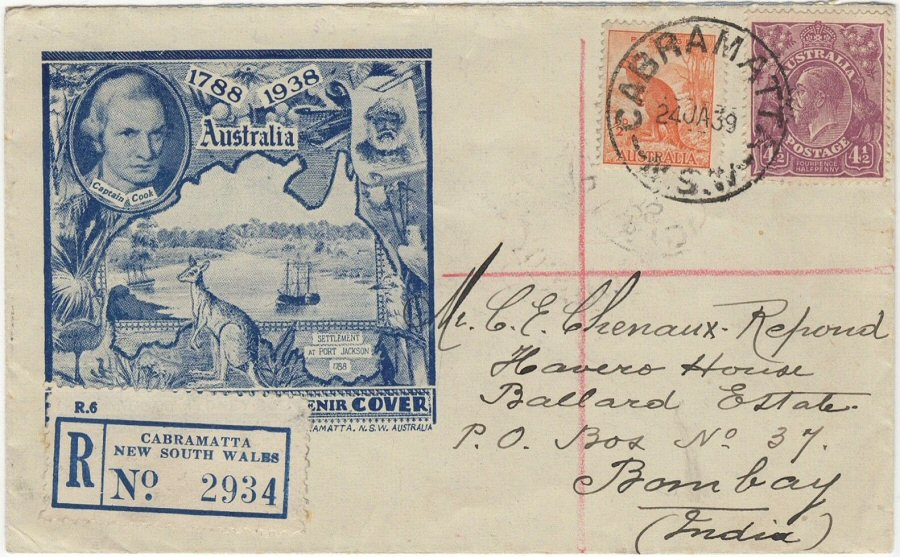 1788 1938
Australia
Captain Cook
SETTLEMENT
AT PORT JACKSON
1788
ENIR COVER
AMATTA, N.S.W. AUSTRALIA
R.6
R
CABRAMATTA
NEW SOUTH WALES
No. 2934
CABRAMATTA
24JA39
N.S.W.
AUSTRALIA
AUSTRALIA
4½ POSTAGE 4½
FOURPENCE
HALFPENNY
Mr. C. E. Chenaux-Repond
Havero House
Ballard Estate.
P. O. Box No 37.
Bombay
(India)